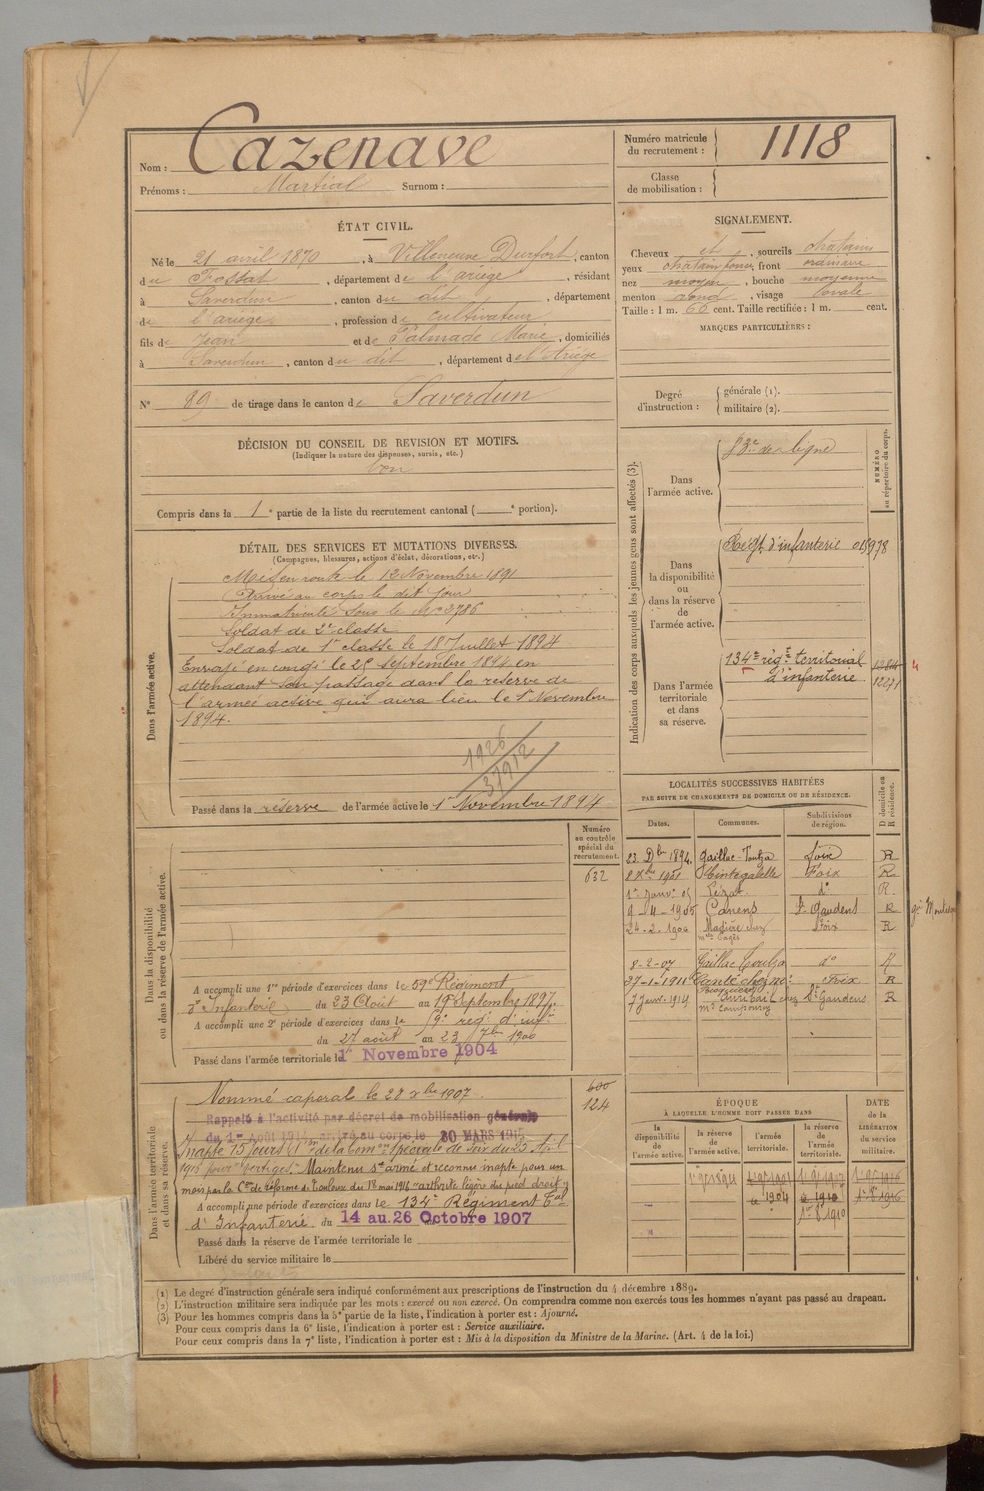 Nom : Cazenave
Prénoms : Martial Surnom :
Numéro matricule du recrutement : 1118
Classe de mobilisation :
ÉTAT CIVIL.
Né le 21 avril 1870, à Villeneuve Durfort, canton
du Fossat, département de l'ariège, résidant
à Saverdun, canton du dit, département
de l'ariège, profession de cultivateur
fils de Jean et de Palmade Marie, domiciliés
à Saverdun, canton du dit, département de l'Ariège
N° 89 de tirage dans le canton de Saverdun
SIGNALEMENT.
Cheveux et, sourcils chatains
yeux chatain foncé, front ordinaire
nez moyen, bouche moyenne
menton rond, visage ovale
Taille : 1 m. 66 cent. Taille rectifiée : 1 m. cent.
MARQUES PARTICULIÈRES :
DÉCISION DU CONSEIL DE REVISION ET MOTIFS.
(Indiquer la nature des dispenses, sursis, etc.)
bon
Compris dans la 1e partie de la liste du recrutement cantonal ( e portion).
Degré d'instruction : générale (1).
militaire (2).
DÉTAIL DES SERVICES ET MUTATIONS DIVERSES.
(Campagnes, blessures, actions d'éclat, décorations, etc.)
Dans l'armée active.
Mis en route le 12 Novembre 1891
Arrivé au corps le dit jour
Immatriculé sous le N° 3786
Soldat de 2e classe
Soldat de 1e classe le 18 Juillet 1894
Envoyé en congé le 25 Septembre 1894 en
attendant son passage dans la réserve de
l'armée active qui aura lieu le 1er Novembre
1894.
1926
37912
Passé dans la réserve de l'armée active le 1er Novembre 1894
Indication des corps auxquels les jeunes gens sont affectés (3).
NUMÉRO au répertoire du corps.
Dans l'armée active.
de ligne
Dans la disponibilité ou dans la réserve de l'armée active.
d'infanterie
Dans l'armée territoriale et dans sa réserve.
134e régt territorial
d'infanterie
12671
LOCALITÉS SUCCESSIVES HABITÉES
PAR SUITE DE CHANGEMENTS DE DOMICILE OU DE RÉSIDENCE.
D domicile ou R résidence.
Dates. Communes. Subdivisions de région.
23 Dbre 1894. Gaillac-Toulza Foix R
8 Xbre 1901 Cintegabelle Foix R
1er Janv. 05 Lézat do R
9-4-1905 Canens St Gaudens R
24-2-1906 Madière chez Foix R
8-2-07 Gaillac Toulza do R
27-1-1911 Canté chez Foix R
7 Janv. 1914 chez St Gaudens R
Numéro au contrôle spécial du recrutement.
632
Dans la disponibilité ou dans la réserve de l'armée active.
A accompli une 1re période d'exercices dans le 59e Régiment
d'Infanterie du 23 Août au 19 Septembre 1897.
A accompli une 2e période d'exercices dans le 9e régt d'infie
du 27 août au 23 7bre 1900
Passé dans l'armée territoriale le 1er Novembre 1904
Dans l'armée territoriale et dans sa réserve.
600
124
Nommé caporal le 28 Xbre 1907.
Rappelé à l'activité par décret de mobilisation générale
du 1er Août 1914 arrivé au corps le 30 MARS 191
Inapte 15 jours Con spéciale de Foix du 23 Avril
1915 pour vertiges. Maintenu s. armé et reconnu inapte pour un
mois par la Con de réforme de Toulouse du 18 mai 1916 "arthrite légère du pied droit"
A accompli une période d'exercices dans le 134e Régiment Tal
d'Infanterie du 14 au 26 Octobre 1907
Passé dans la réserve de l'armée territoriale le
Libéré du service militaire le
ÉPOQUE
À LAQUELLE L'HOMME DOIT PASSER DANS
DATE de la LIBÉRATION du service militaire.
la disponibilité de l'armée active. la réserve de l'armée active. l'armée territoriale. la réserve de l'armée territoriale.
1904 1910 1916
(1) Le degré d'instruction générale sera indiqué conformément aux prescriptions de l'instruction du 4 décembre 1889.
(2) L'instruction militaire sera indiquée par les mots : exercé ou non exercé. On comprendra comme non exercés tous les hommes n'ayant pas passé au drapeau.
(3) Pour les hommes compris dans la 5e partie de la liste, l'indication à porter est : Ajourné.
Pour ceux compris dans la 6e liste, l'indication à porter est : Service auxiliaire.
Pour ceux compris dans la 7e liste, l'indication à porter est : Mis à la disposition du Ministre de la Marine. (Art. 4 de la loi.)